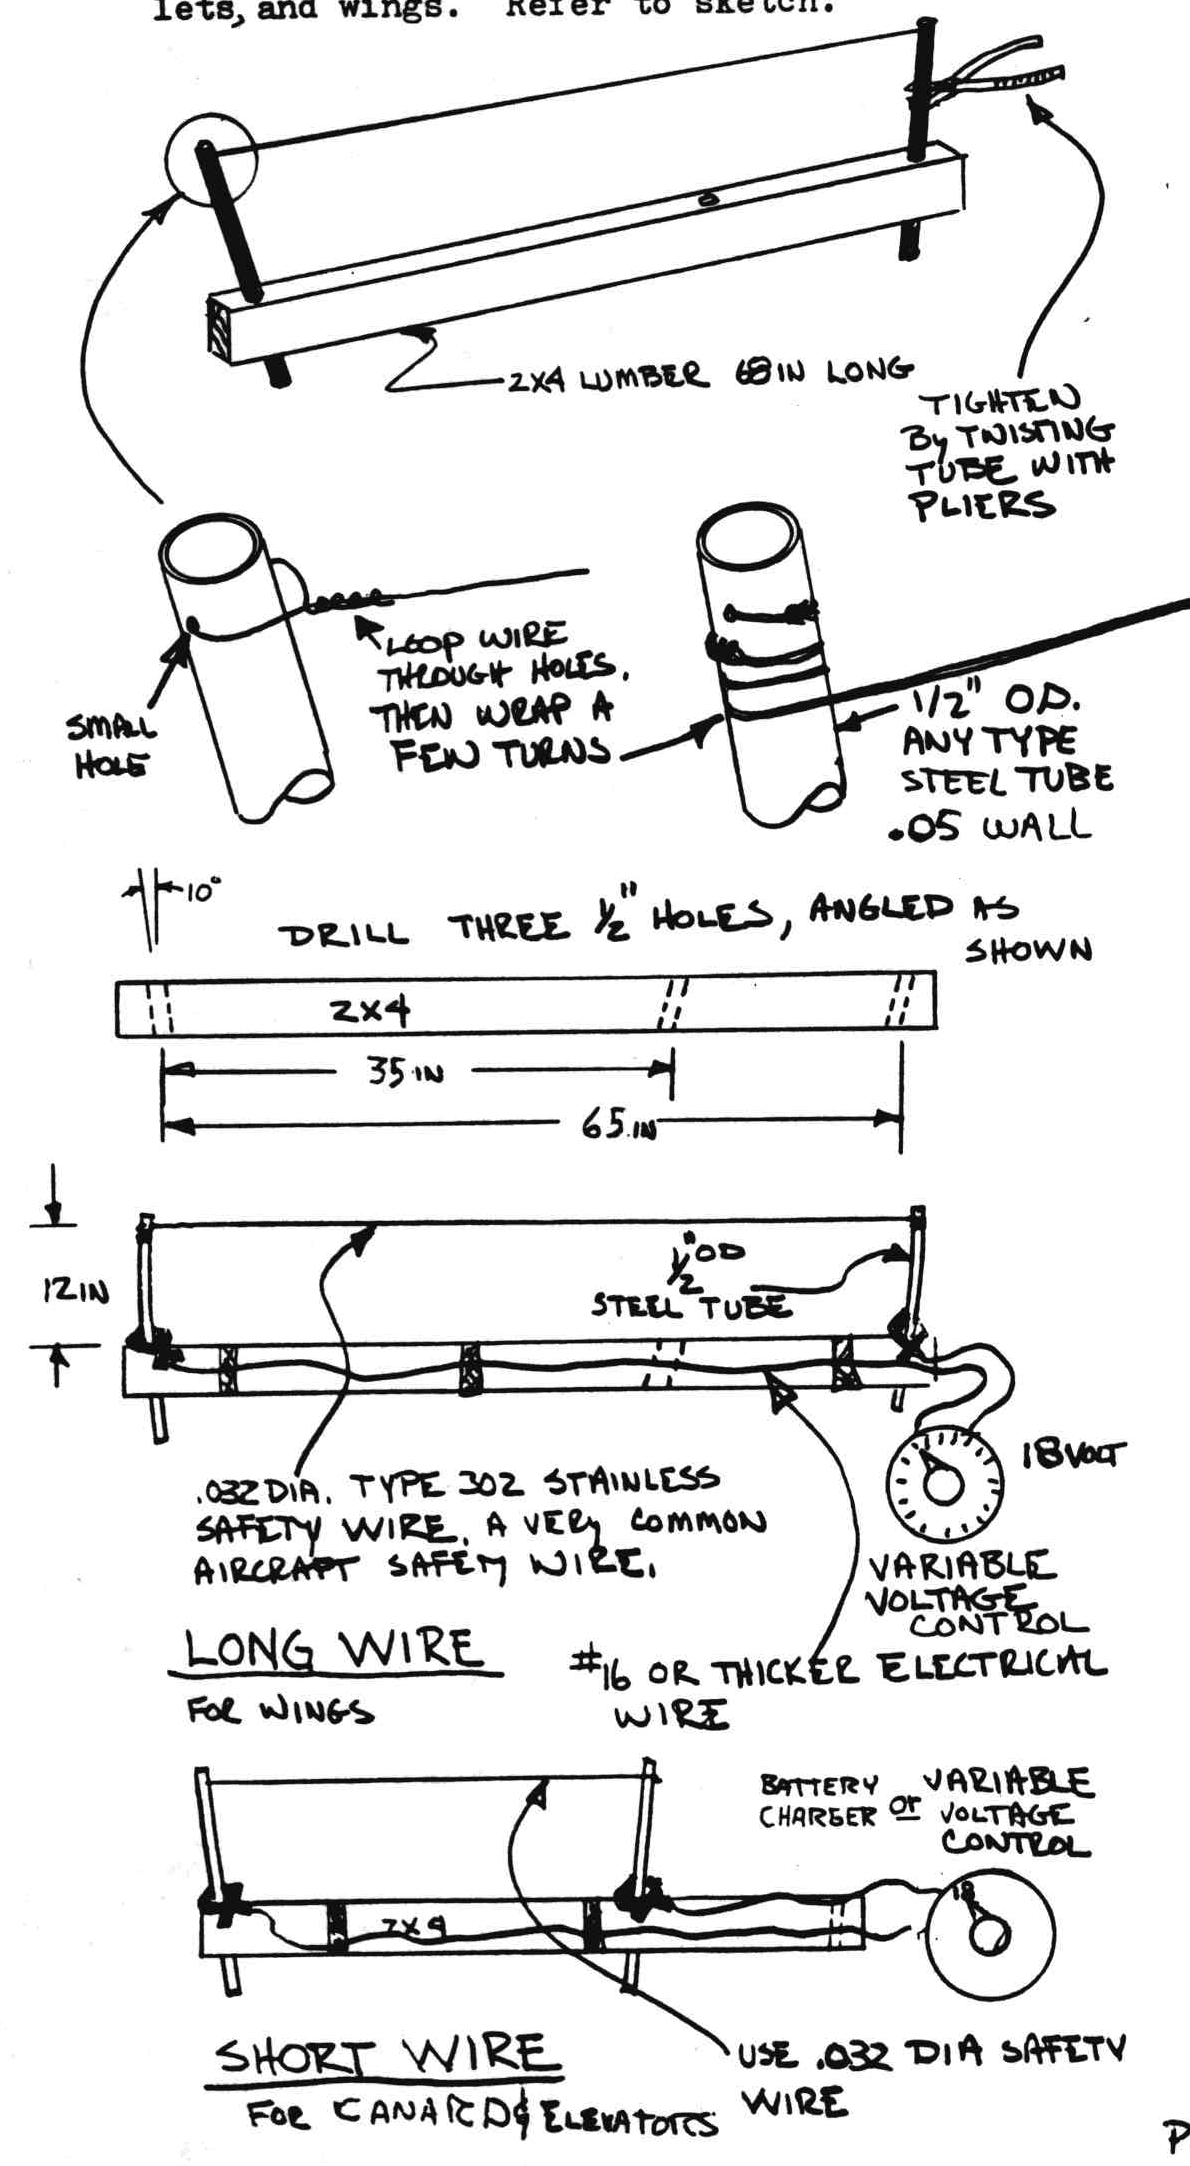 lets, and wings. Refer to sketch.
2X4 LUMBER 68 IN LONG
TIGHTEN
By TWISTING
TUBE WITH
PLIERS
SMALL
HOLE
LOOP WIRE
THROUGH HOLES,
THEN WRAP A
FEW TURNS
1/2" O.D.
ANY TYPE
STEEL TUBE
.05 WALL
10°
DRILL THREE 1/2" HOLES, ANGLED AS
SHOWN
2X4
35 IN
65 IN
12 IN
1/2" OD
STEEL TUBE
18 VOLT
.032 DIA. TYPE 302 STAINLESS
SAFETY WIRE. A VERY COMMON
AIRCRAFT SAFETY WIRE.
VARIABLE
VOLTAGE
CONTROL
LONG WIRE
FOR WINGS
#16 OR THICKER ELECTRICAL
WIRE
BATTERY
CHARGER or
VARIABLE
VOLTAGE
CONTROL
18
2X4
SHORT WIRE
FOR CANARD & ELEVATORS
USE .032 DIA SAFETY
WIRE
P